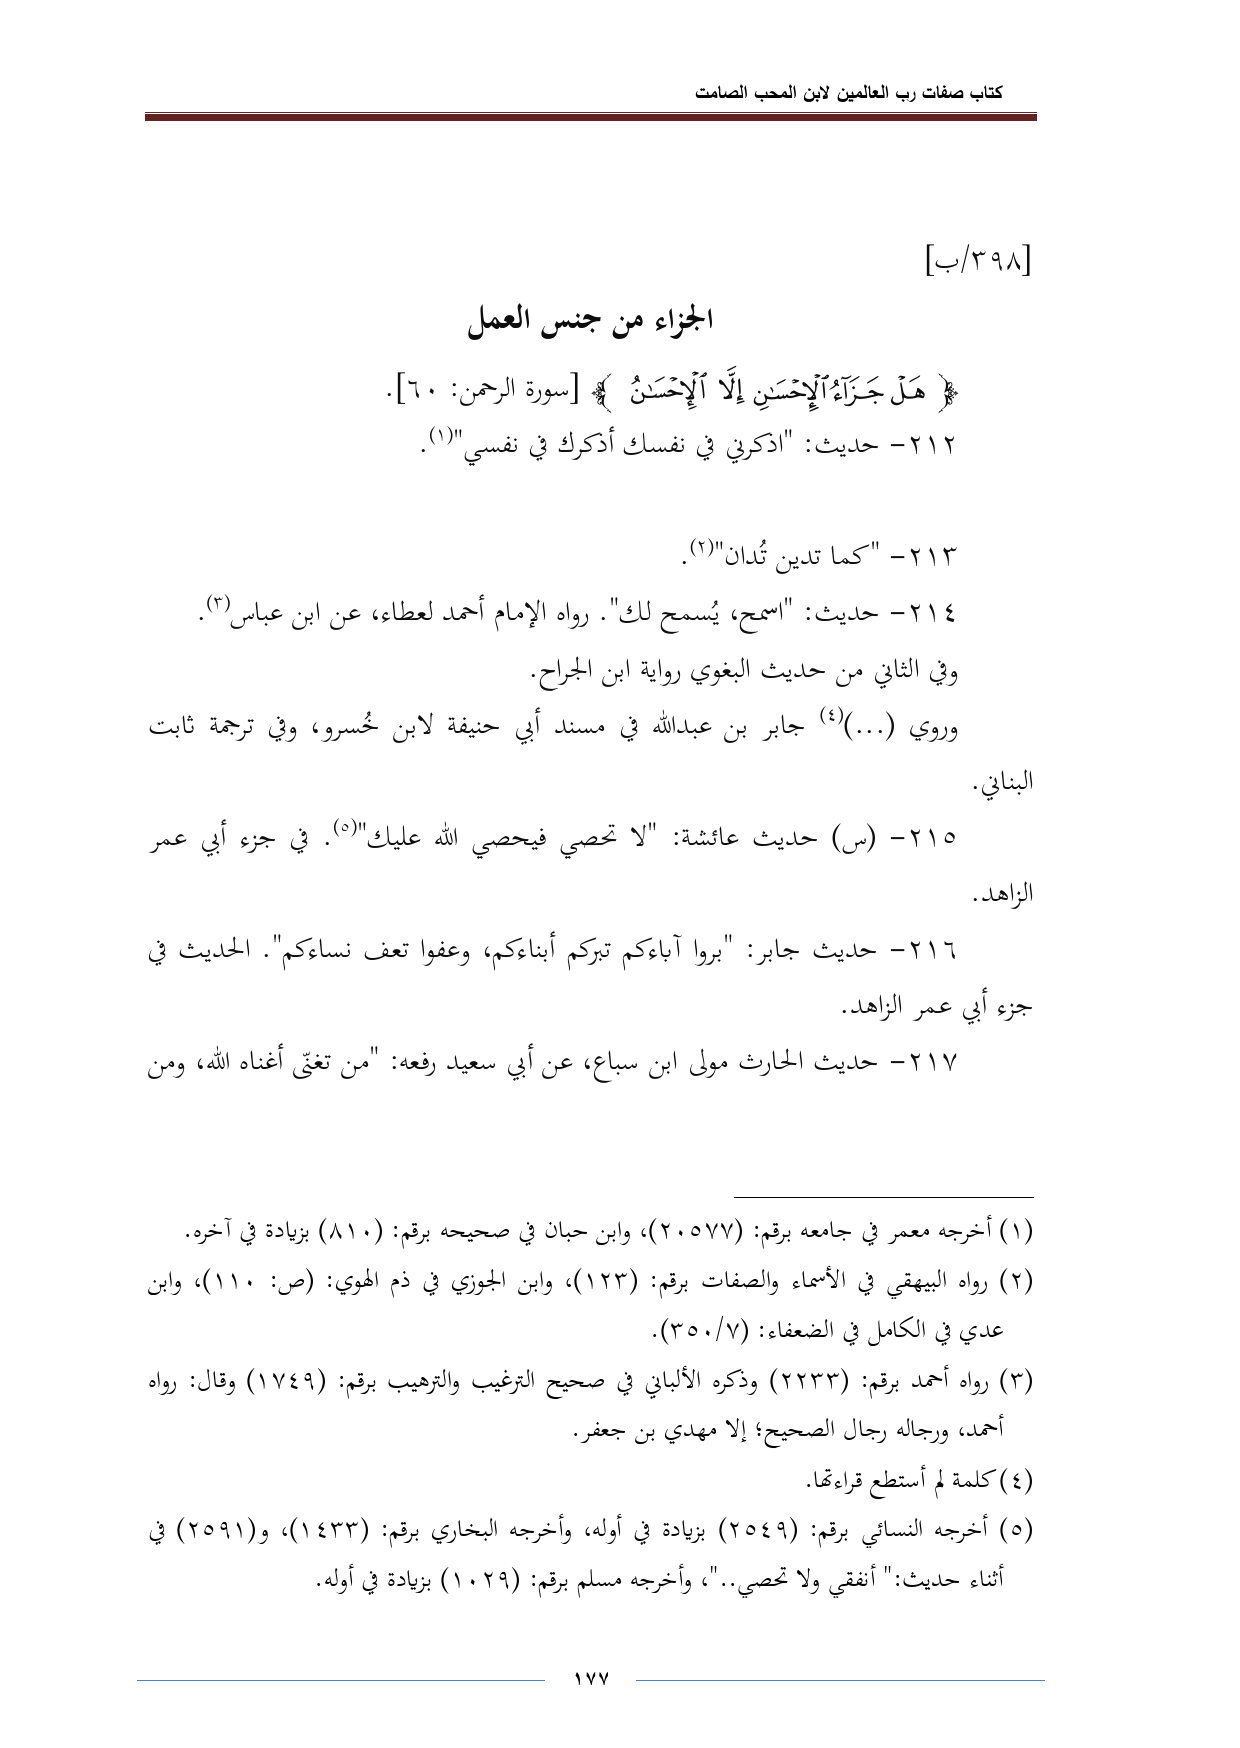 كتاب صفات رب العالمين لابن المحب الصامت
[٣٩٨/ب]
الجزاء من جنس العمل
﴿ هَلْ جَزَآءُ ٱلْإِحْسَٰنِ إِلَّا ٱلْإِحْسَٰنُ ﴾ [سورة الرحمن: ٦٠].
٢١٢- حديث: "اذكرني في نفسك أذكرك في نفسي"(١).
٢١٣- "كما تدين تُدان"(٢).
٢١٤- حديث: "اسمح، يُسمح لك". رواه الإمام أحمد لعطاء، عن ابن عباس(٣).
وفي الثاني من حديث البغوي رواية ابن الجراح.
وروي (...)(٤) جابر بن عبدالله في مسند أبي حنيفة لابن خُسرو، وفي ترجمة ثابت
البناني.
٢١٥- (س) حديث عائشة: "لا تحصي فيحصي الله عليك"(٥). في جزء أبي عمر
الزاهد.
٢١٦- حديث جابر: "بروا آباءكم تبركم أبناءكم، وعفوا تعف نساءكم". الحديث في
جزء أبي عمر الزاهد.
٢١٧- حديث الحارث مولى ابن سباع، عن أبي سعيد رفعه: "من تغنّى أغناه الله، ومن
(١) أخرجه معمر في جامعه برقم: (٢٠٥٧٧)، وابن حبان في صحيحه برقم: (٨١٠) بزيادة في آخره.
(٢) رواه البيهقي في الأسماء والصفات برقم: (١٢٣)، وابن الجوزي في ذم الهوي: (ص: ١١٠)، وابن
عدي في الكامل في الضعفاء: (٣٥٠/٧).
(٣) رواه أحمد برقم: (٢٢٣٣) وذكره الألباني في صحيح الترغيب والترهيب برقم: (١٧٤٩) وقال: رواه
أحمد، ورجاله رجال الصحيح؛ إلا مهدي بن جعفر.
(٤) كلمة لم أستطع قراءتها.
(٥) أخرجه النسائي برقم: (٢٥٤٩) بزيادة في أوله، وأخرجه البخاري برقم: (١٤٣٣)، و(٢٥٩١) في
أثناء حديث:" أنفقي ولا تحصي.."، وأخرجه مسلم برقم: (١٠٢٩) بزيادة في أوله.
١٧٧